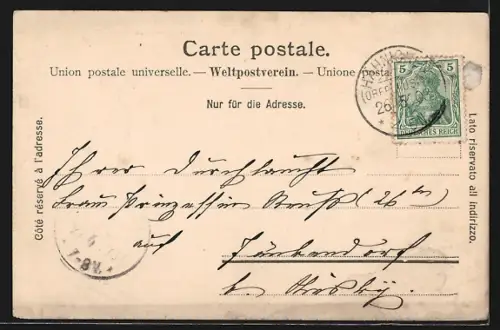 Carte postale.
Union postale universelle. — Weltpostverein. — Unione posta
Nur für die Adresse.
Côté réservé à l'adresse.
Lato riservato all indirizzo.
5 5
DEUTSCHES REICH
26.5.0
7-8V.
Ihrer Durchlaucht
Frau Prinzessin Reuß (26ten
auf Jänkendorf
b. Niesky